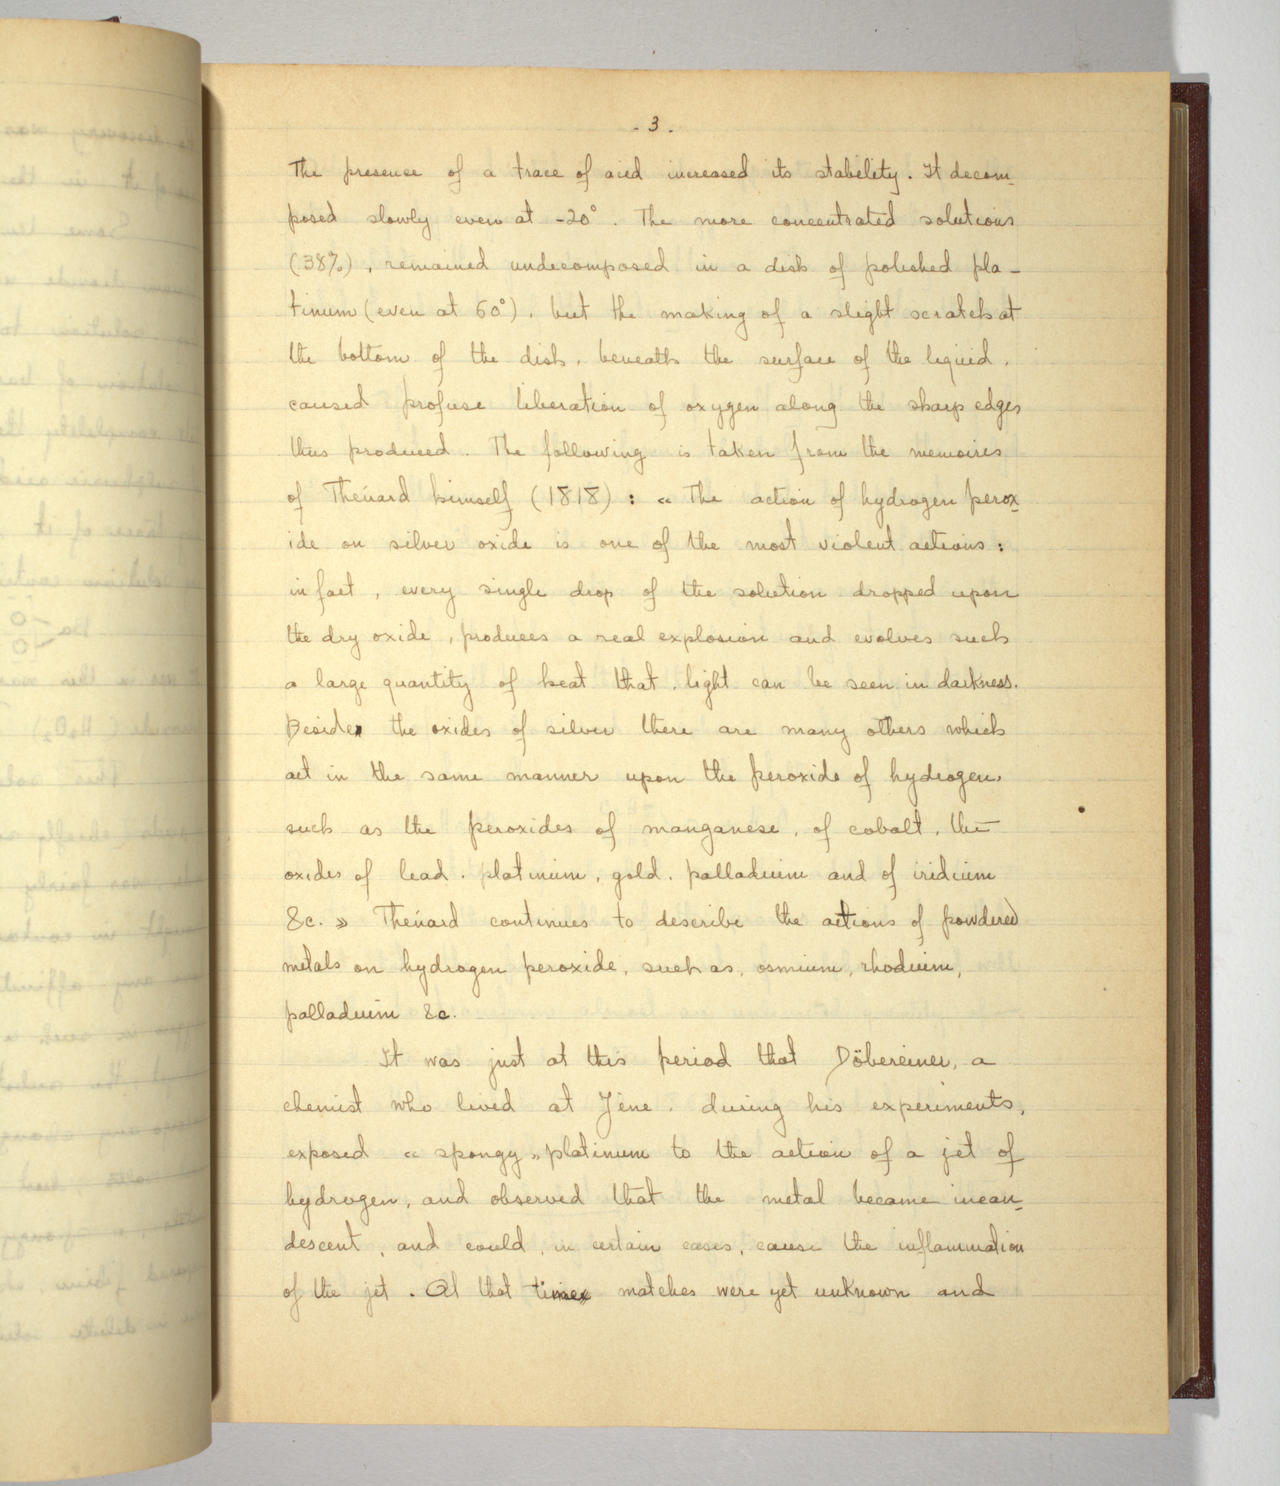 - 3 .
The presence of a trace of acid increased its stability. It decom-
posed slowly even at -20°. The more concentrated solutions
(38%), remained undecomposed in a dish of polished pla-
tinum (even at 60°), but the making of a slight scratch at
the bottom of the dish, beneath the surface of the liquid,
caused profuse liberation of oxygen along the sharp edges
thus produced. The following is taken from the memoires
of Thénard himself (1818) : « The action of hydrogen perox-
ide on silver oxide is one of the most violent actions :
in fact, every single drop of the solution dropped upon
the dry oxide, produces a real explosion and evolves such
a large quantity of heat that, light can be seen in darkness.
Beside the oxides of silver there are many others which
act in the same manner upon the peroxide of hydrogen,
such as the peroxides of manganese, of cobalt, the
oxides of lead, platinium, gold, palladuim and of iridium
&c. » Thénard continues to describe the actions of powdered
metals on hydrogen peroxide, such as, osmium, rhoduim,
palladuim &c.
It was just at this period that Döbereiner, a
chemist who lived at Jène, during his experiments,
exposed « spongy » platinum to the action of a jet of
hydrogen, and observed that the metal became incan-
descent, and could, in certain cases, cause the inflammation
of the jet. At that time matches were yet unknown and